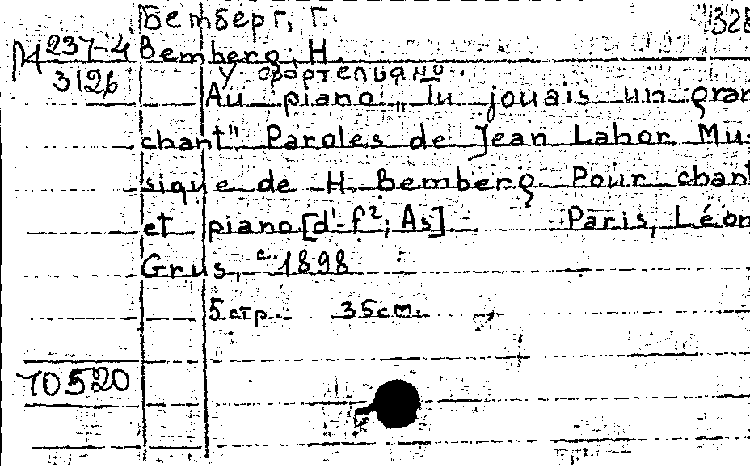 Бемберг, Г.
328
М 237-4
3126
Bemberg, H.
У фортепиано.
Au piano „Tu jouais un gran
chant" Paroles de Jean Lahor Mu-
sique de H. Bemberg Pour chant
et piano [d'-f²; As] - Paris, Léon
Grus, c. 1898
5 стр. 35 cm.
70520